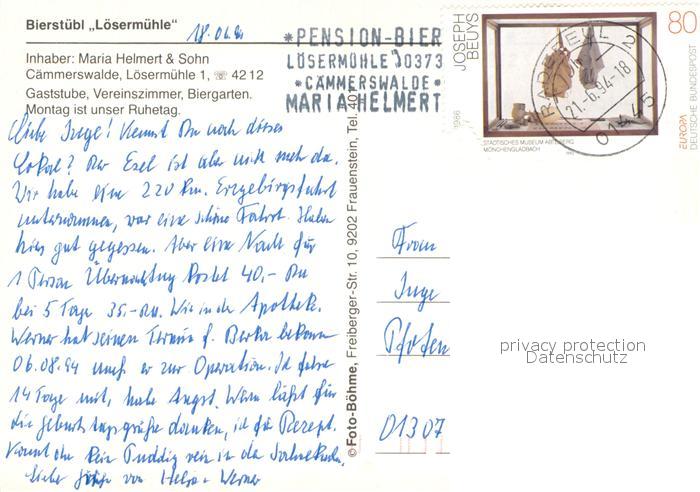 Bierstübl „Lösermühle“
18.06.94
Inhaber: Maria Helmert & Sohn
Cämmerswalde, Lösermühle 1, ☏ 42 12
Gaststube, Vereinszimmer, Biergarten.
Montag ist unser Ruhetag.
*PENSION-BIER
LÖSERMÜHLE 10373
*CÄMMERSWALDE*
MARIA HELMERT
Liebe Inge! Kennst Du noch dieses
Lokal? Der Esel ist aber nicht mehr da.
Wir habe eine 220 Km. Erzgebirgsfahrt
unternommen, war eine schöne Fahrt. Haben
hier gut gegessen. Aber eine Nacht für
1 Person Übernachtung kostet 40,- DM
bei 5 Tage 35,- DM. Wie in der Apotheke.
Werner hat seinen Termin f. Berlin bekomm
06.08.94 muß er zur Operation. Ich fahre
14 Tage mit, habe Angst. Wenn läßt für
die Geburtstagsgrüße danken, ich für Rezept.
Kommt denn kein Pudding rein in die
Liebe Grüße von Helga + Werner
© Foto-Böhme, Freiberger-Str. 10, 9202 Frauenstein, Tel. 407
JOSEPH
BEUYS
80
1986
STÄDTISCHES MUSEUM ABTEIBERG
MÖNCHENGLADBACH
EUROPA
DEUTSCHE BUNDESPOST
RADEBEUL 2
21.-6.94-18
01445
Frau
Inge
01307
privacy protection
Datenschutz